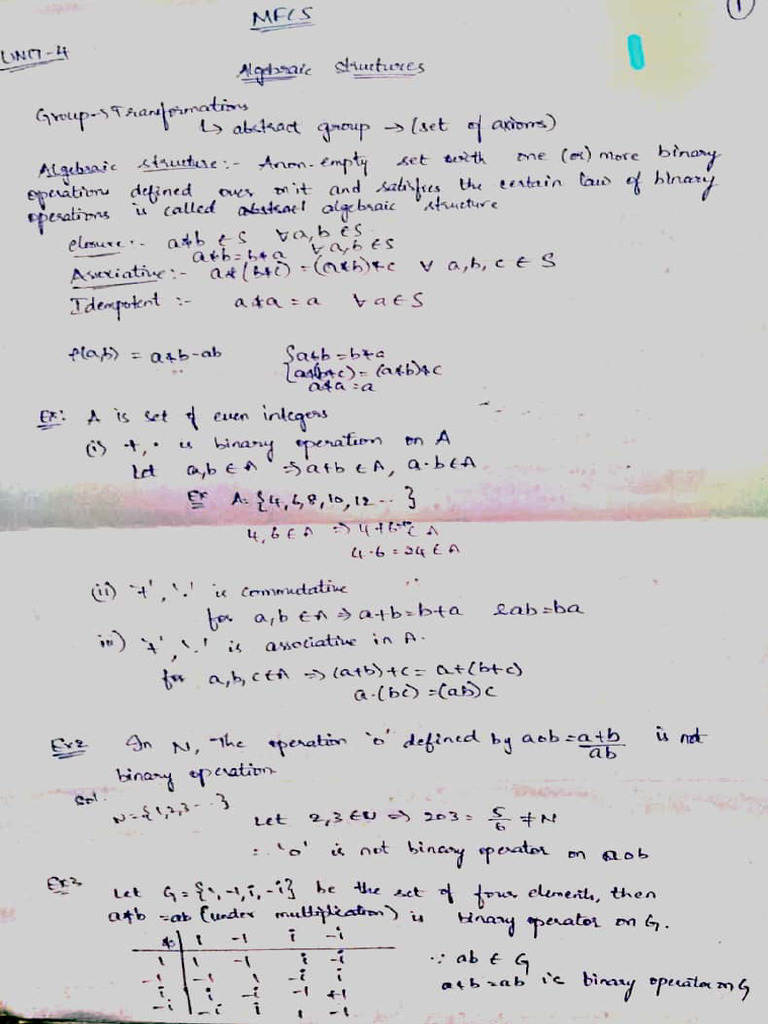 MFCS
1
UNIT-4
Algebraic structures
Group → Transformations
↳ abstract group → (set of axioms)
Algebraic structure:- A non-empty set with one (or) more binary
operations defined over on it and satisfies the certain law of binary
operations is called abstract algebraic structure
closure:- a*b ∈ S ∀a,b ∈ S
a*b = b*a ∀a,b ∈ S
Associative:- a*(b*c) = (a*b)*c ∀ a,b,c ∈ S
Idempotent :- a*a = a ∀ a ∈ S
f(a,b) = a+b-ab { a*b = b*a
a*(b*c) = (a*b)*c
a*a = a
Ex: A is set of even integers
(i) +, · is binary operation on A
Let a,b ∈ A ⇒ a+b ∈ A, a·b ∈ A
Ex A = {4,6,8,10,12 ...}
4,6 ∈ A ⇒ 4+6=10 ∈ A
4·6 = 24 ∈ A
(ii) '+', '.' is commutative
for a,b ∈ A ⇒ a+b = b+a & ab = ba
iii) '+', '.' is associative in A.
for a,b,c ∈ A ⇒ (a+b)+c = a+(b+c)
a.(bc) = (ab)c
Ex2 In N, The operation 'o' defined by aob = a+b/ab is not
binary operation
Sol. N = {1,2,3 ...}
Let 2,3 ∈ N ⇒ 2o3 = 5/6 ≠ N
∴ 'o' is not binary operator on aob
Ex3 Let G = {1,-1,i,-i} be the set of four elements, then
a*b = ab (under multiplication) is binary operator on G.
* | 1 -1 i -i
1 | 1 -1 i -i
-1 | -1 1 -i i
i | i -i -1 +1
-i | -i i 1 -1
∵ ab ∈ G
a*b = ab is binary operator on G